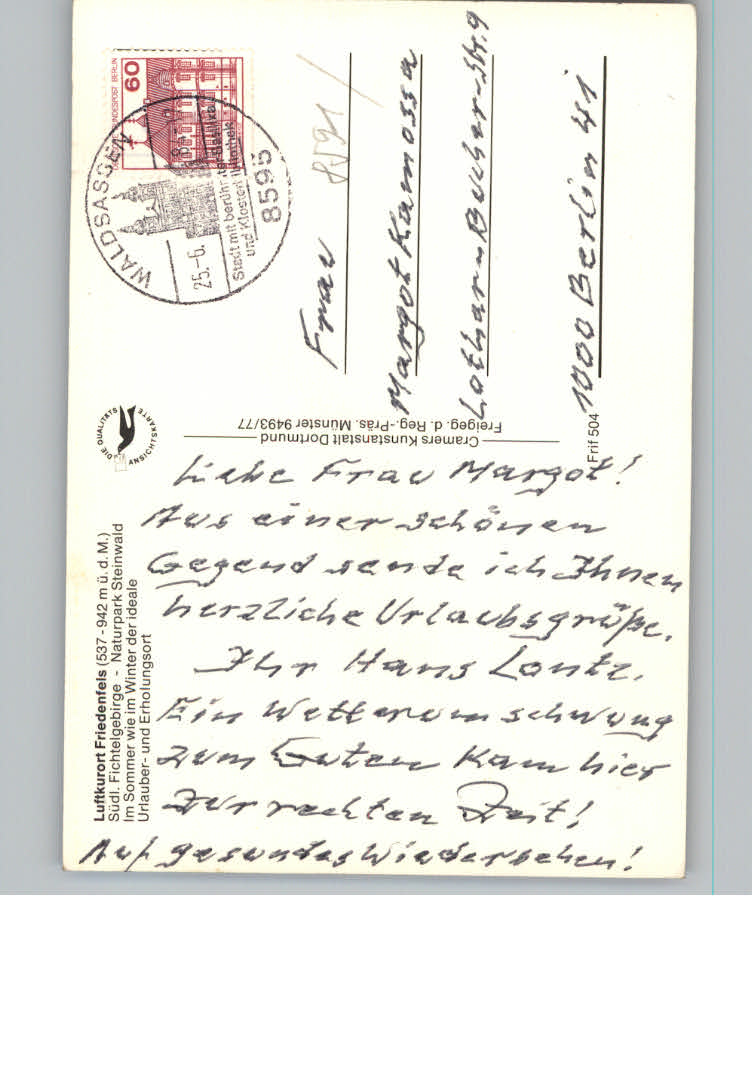 Luftkurort Friedenfels (537 - 942 m ü. d. M.)
Südl. Fichtelgebirge - Naturpark Steinwald
Im Sommer wie im Winter der ideale
Urlauber- und Erholungsort
DIE QUALITÄTS
ANSICHTSKARTE
Cramers Kunstanstalt Dortmund
Freigeg. d. Reg.-Präs. Münster 9493/77
Frif 504
BUNDESPOST BERLIN
60
WALDSASSEN
25.-6.
Stadt mit berühmter Basilika
und Klosterbibliothek
8595
8591
Frau
Margot Kamossa
Lothar-Bucher-Str. 9
1000 Berlin 41
Liebe Frau Margot!
Aus einer schönen
Gegend sende ich Ihnen
herzliche Urlaubsgrüße.
Ihr Hans Lontz.
Ein Wetterumschwung
zum Guten kam hier
zur rechten Zeit!
Auf gesundes Wiedersehen!